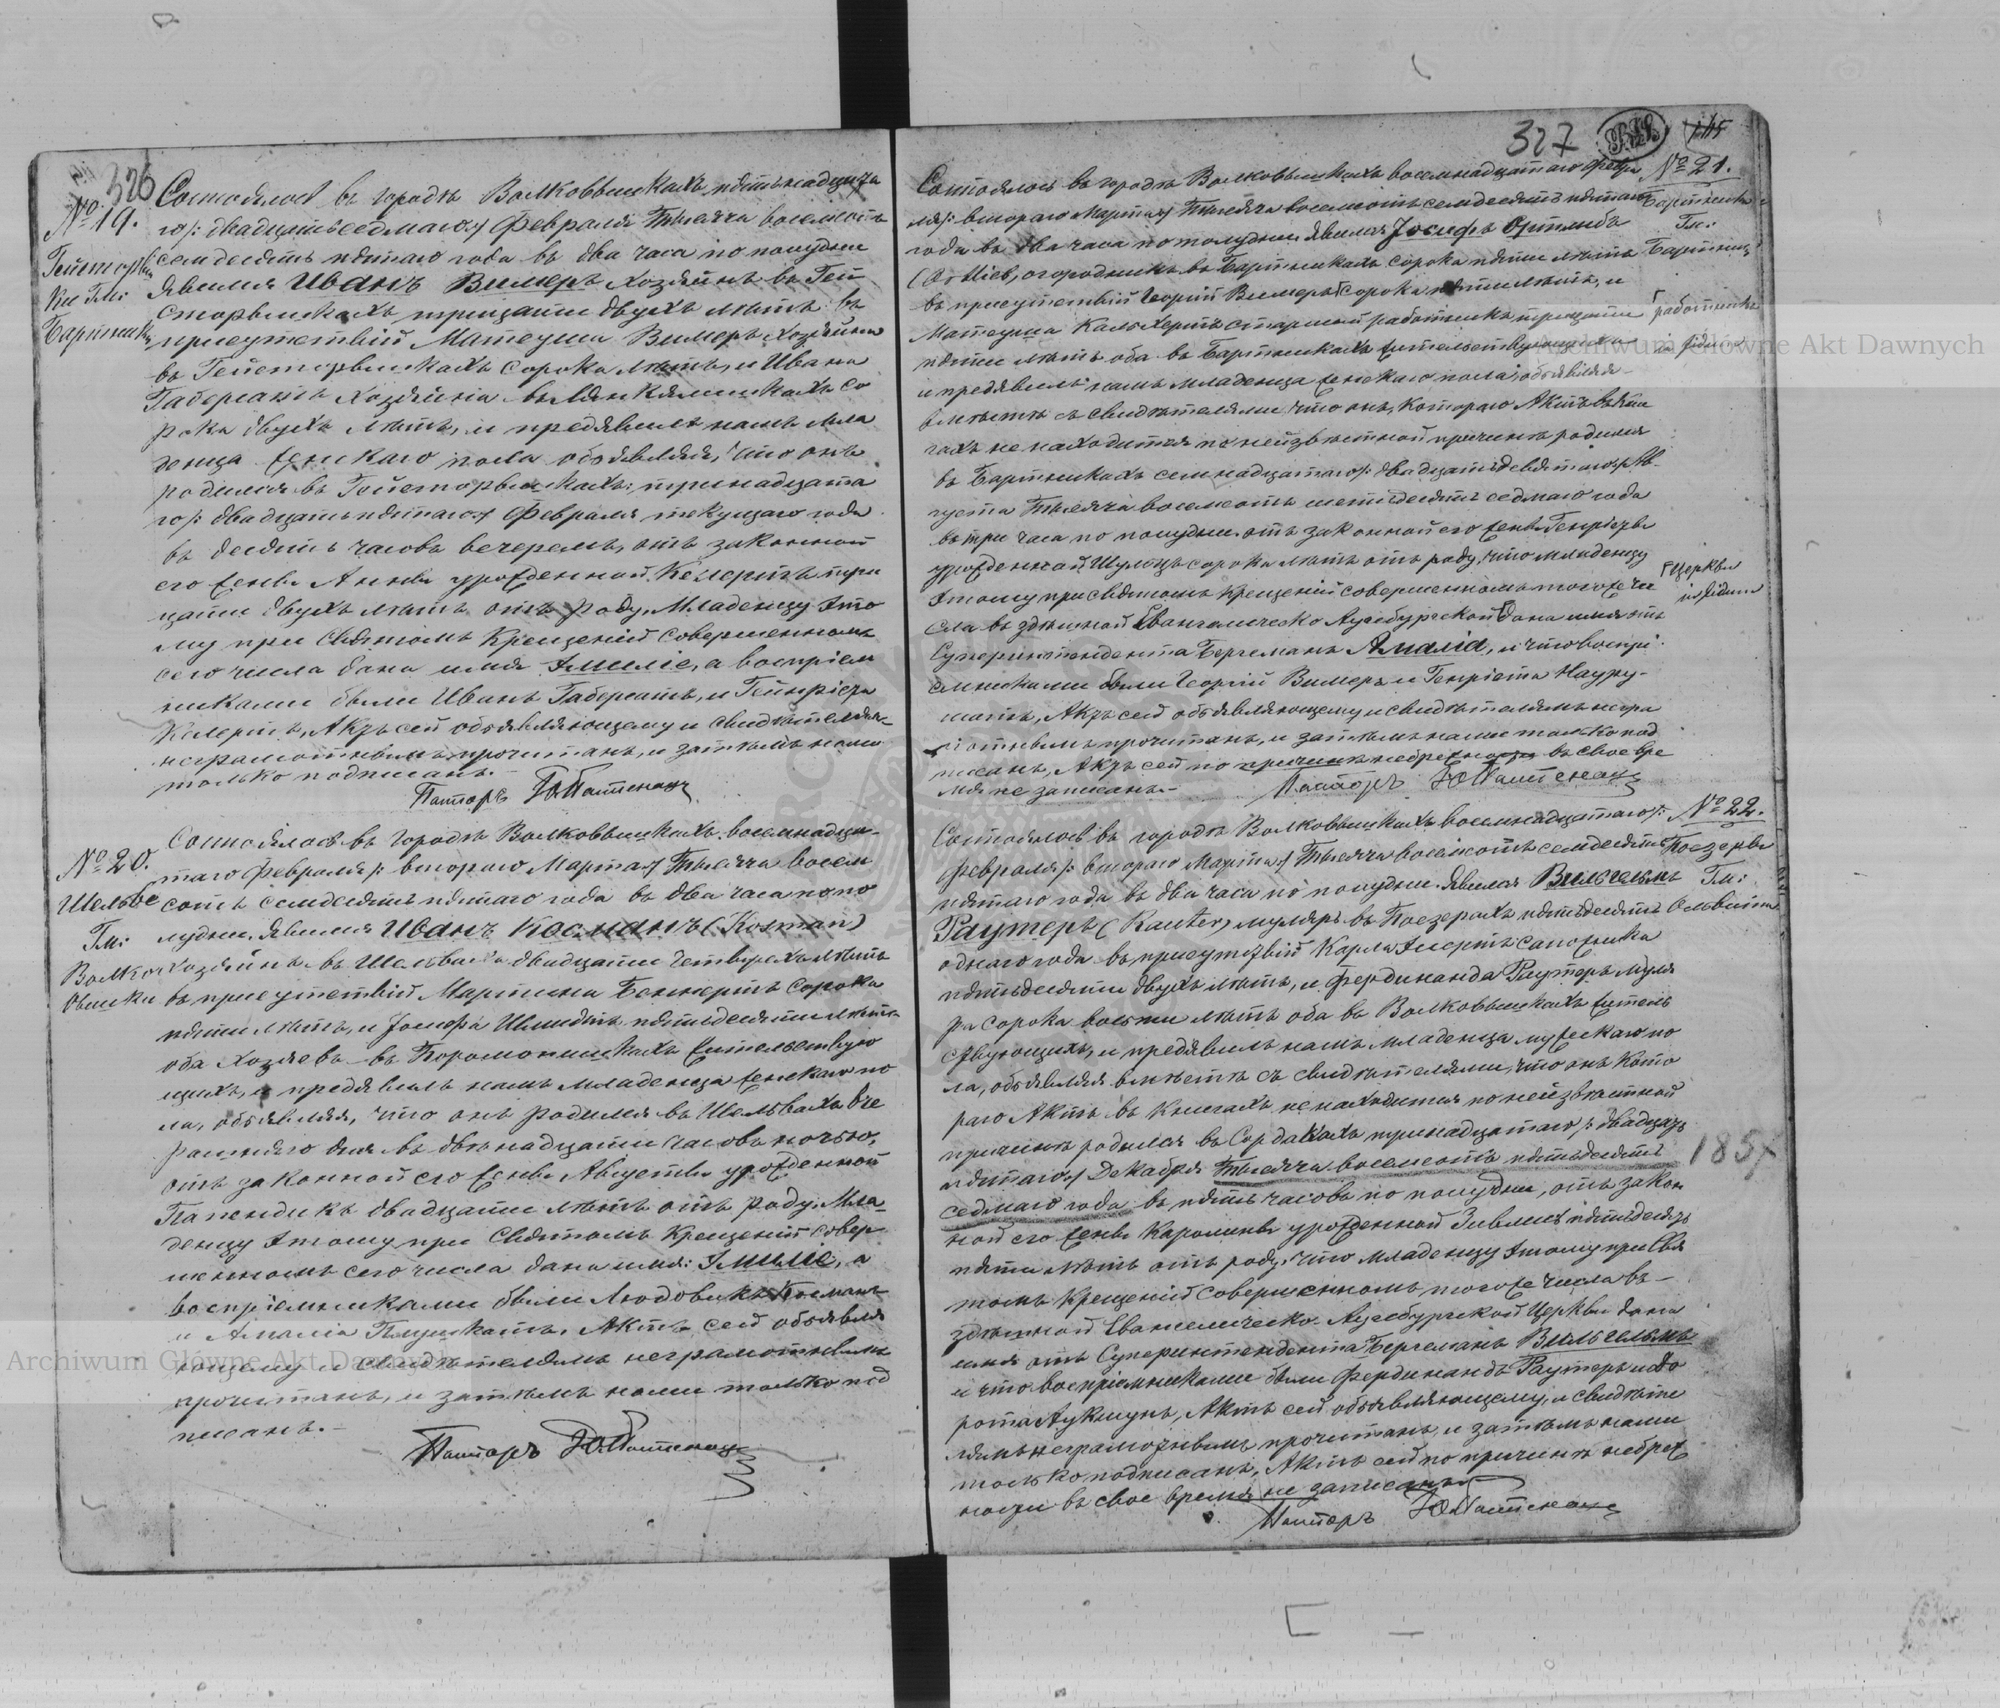 326
№ 19.
Гейсторвишки Гм: Бартники
Состоялось въ городѣ Волковышкахъ пятьнадцата
го /: двадцатьседмаго :/ Февраля Тысяча восемьсотъ
семдесятъ пятаго года въ два часа по полудни
Явился Иванъ Вимеръ Хозяинъ въ Гей
сторвишкахъ тридцати двухъ лѣтъ въ
присутствіи Матеуша Вимеръ Хозяина
въ Гейсторвишкахъ сорока лѣтъ, и Ивана
Хозяина въ со
рока двухъ лѣтъ, и предявилъ намъ мла
денца женскаго пола объявляя, что онъ
родился въ Гейсторвишкахъ тринадцата
го /: двадцатьпятаго :/ Февраля текущаго года
въ десять часовъ вечеромъ, отъ законной
его жены Анны урожденной Келертъ три
цати двухъ лѣтъ отъ роду. Младенцу это
му при Святомъ Крещеніи совершенномъ
сего числа дана имя Эмилiе, а воспріем
никами были Иванъ и Генріета
Келертъ, Актъ сей объявляющему и свидѣтелямъ
неграмотнымъ прочитанъ, и затѣмъ нами
только подписанъ.-
Пасторъ
№ 20.
Шельвы
Гм:
Волковышки
Состоялось въ городѣ Волковышкахъ восемнадца-
таго Февраля /: втораго Марта :/ Тысяча восем
сотъ семдесятъ пятаго года въ два часа по по
лудни. Явился Иванъ Косманъ (Kosman)
хозяинъ въ Шельвахъ двадцати четырехъ лѣтъ
въ присутствіи Мартина сорока
пяти лѣтъ, и Іосифа Шмидтъ пятьдесяти лѣтъ
оба Хозяевъ въ жительствую
щихъ, и предявилъ намъ младенца женскаго по
ла, объявляя, что онъ родился въ Шельвахъ вче
рашняго дня въ двѣнадцати часовъ ночью,
отъ законной его жены Августы урожденной
Папендикъ двадцати лѣтъ отъ роду. Мла
денцу этому при Святомъ Крещеніи совер-
шенномъ сего числа дана имя: Эмиліе, а
воспріемниками были Людовикъ Косманъ
и Амалія Актъ сей объявля
ющему и свидѣтелямъ неграмотнымъ
прочитанъ, и затѣмъ нами только под
писанъ.-
Пасторъ
327
145
№ 21.
Бартники
Гм:
Бартники
Состоялось въ городѣ Волковышкахъ восемнадцатаго Февра
ля /: втораго Марта :/ Тысяча восемьсотъ семдесятъ пятаго
года въ два часа по полудни явился Іосифъ Ортлибъ
(Ortlieb, огородникъ въ Бартникахъ сорока пяти лѣтъ
въ присутствіи Георгій Вимеръ сорока пяти лѣтъ, и
Матеуша работникъ тридцати
пяти лѣтъ оба въ Бартникахъ жительствующихъ
работникъ
и предявилъ намъ младенца женскаго пола, объявляя
вмѣстѣ съ свидѣтелями что онъ, котораго Актъ въ кни
гахъ не находится по неизвѣстной причинѣ родился
въ Бартникахъ семнадцатаго /: двадцатьдевятаго :/ Ав-
густа Тысяча восемсотъ шестьдесятъ седмаго года
въ три часа по полудни отъ законной его жены Генріеты
урожденной Шульцъ сорока лѣтъ отъ роду, что младенцу
этому при Святомъ Крещеніи совершенномъ того же чи
Церквы
сла въ здѣшной Евангелическо Аугсбургской дана имя отъ
Суперинтендента Бергеманъ Амалія, и что воспрі
емниками были Георгій Вимеръ и Генріета
Актъ сей объявляющему и свидѣтелямъ негра
мотнымъ прочитанъ, и затѣмъ нами только под
писанъ, Актъ сей по причинѣ въ свое вре
мя не записанъ.-
Пасторъ
№ 22.
Поезеры
Гм:
Состоялось въ городѣ Волковышкахъ восемнадцатаго
Февраля /: втораго Марта :/ Тысяча восемсотъ семдесятъ
пятаго года въ два часа по полудни. Явился Вильгельмъ
Раутеръ (Rauter) муляръ въ Поезерахъ пятьдесятъ
однаго года въ присутствіи Карла сапожника
пятьдесяти двухъ лѣтъ, и Фердинанда Раутеръ муля
ра сорока восьми лѣтъ оба въ Волковышкахъ житель
ствующихъ, и предявилъ намъ младенца мужескаго по
ла, объявляя вмѣстѣ съ свидѣтелями, что онъ кото
раго Актъ въ Книгахъ не находится по неизвѣстной
причинѣ родился въ тринадцатаго /: двадцать
пятаго :/ Декабря Тысяча восемсотъ пятьдесятъ
1857
седмаго года въ пять часовъ по полудни, отъ закон
ной его жены Каролины урожденной пятидесять
пяти лѣтъ отъ роду, что младенцу этому при Свя
томъ Крещеніи совершенномъ того же числа въ-
здѣшной Евангелическо Аугсбургской Церквы дана
имя отъ Суперинтендента Бергеманъ Вильгельмъ
и что воспріемниками были Фердинандъ Раутеръ и До
рота Актъ сей объявляющему, и свидѣте
лямъ неграмотнымъ прочитанъ, и затѣмъ нами
только подписанъ, Актъ сей по причинѣ небреж
ности въ свое время не записанъ
Пасторъ
Archiwum Główne Akt Dawnych
Archiwum Główne Akt Dawnych